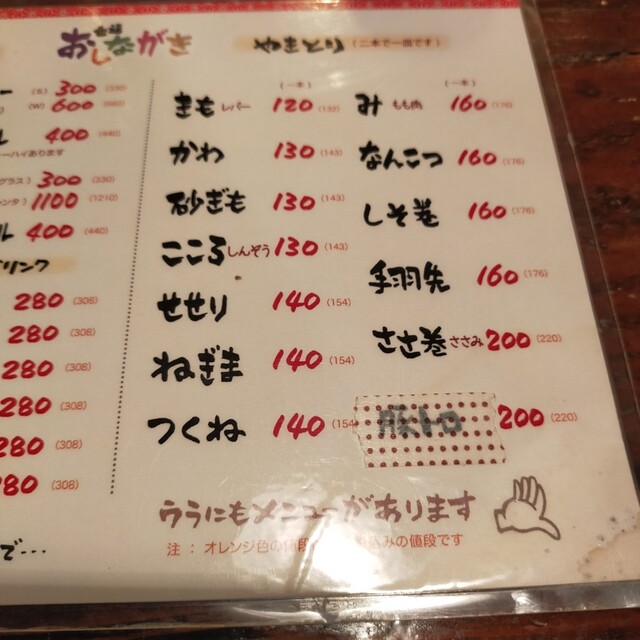 おしながき
やきとり (二本で一皿です)
(S) 300 (330)
(W) 600 (660)
400 (440)
ーハイあります
グラス) 300 (330)
1100 (1210)
ル 400 (440)
リンク
280 (308)
280 (308)
280 (308)
280 (308)
280 (308)
280 (308)
で…
(一本)
きも レバー 120 (132)
かわ 130 (143)
砂ぎも 130 (143)
こころ しんぞう 130 (143)
せせり 140 (154)
ねぎま 140 (154)
つくね 140 (154
(一本)
み もも肉 160 (176)
なんこつ 160 (176)
しそ巻 160 (176)
手羽先 160 (176)
ささ巻 ささみ 200 (220)
豚トロ 200 (220)
うらにもメニューがあります
注 : オレンジ色の値段 込みの値段です